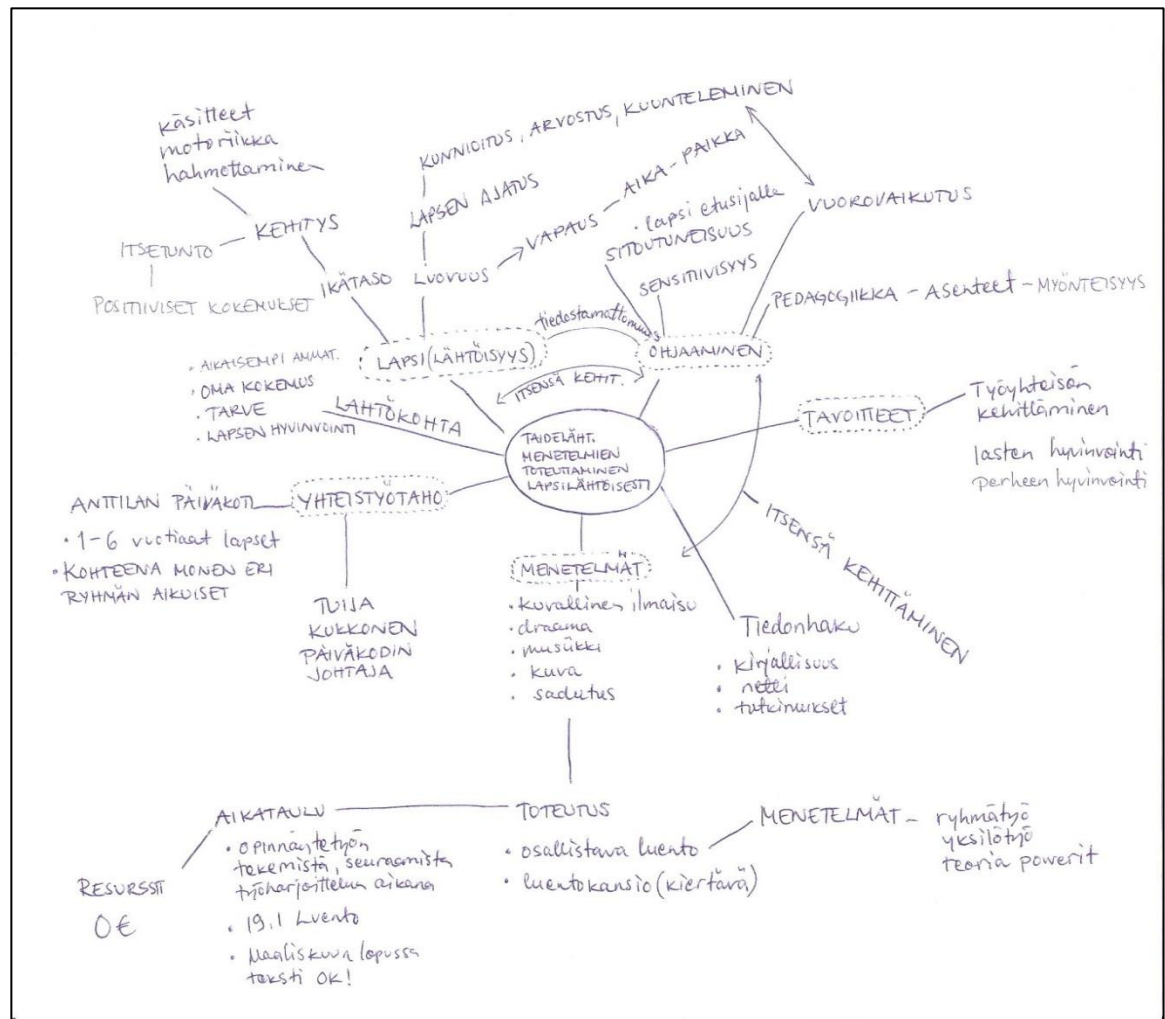 käsitteet
motoriikka
hahmottaminen
KEHITYS
ITSETUNTO
POSITIIVISET KOKEMUKSET
IKÄTASO
KUNNIOITUS, ARVOSTUS, KUUNTELEMINEN
LAPSEN AJATUS
LUOVUUS
VAPAUS - AIKA - PAIKKA
• lapsi etusijalle
SITOUTUNEISUUS
SENSITIIVISYYS
VUOROVAIKUTUS
PEDAGOGIIKKA - Asenteet - MYÖNTEISYYS
tiedostamattomuus
LAPSI(LÄHTÖISYYS)
OHJAAMINEN
ITSENSÄ KEHIT.
• AIKAISEMPI AMMAT.
• OMA KOKEMUS
• TARVE
• LAPSEN HYVINVOINTI
LÄHTÖKOHTA
TAIDELÄHT.
MENETELMIEN
TOTEUTTAMINEN
LAPSILÄHTÖISESTI
TAVOITTEET
Työyhteisön
kehittäminen
lasten hyvinvointi
perheen hyvinvointi
ANTTILAN PÄIVÄKOTI
YHTEISTYÖTAHO
• 1-6 vuotiaat lapset
• KOHTEENA MONEN ERI
RYHMÄN AIKUISET
TUIJA
KUKKONEN
PÄIVÄKODIN
JOHTAJA
MENETELMÄT
• kuvallinen ilmaisu
• draama
• musiikki
• kuva
• sadutus
Tiedonhaku
• kirjallisuus
• netti
• tutkimukset
ITSENSÄ KEHITTÄMINEN
AIKATAULU
• opinnäytetyön
tekemistä, seuraamista
työharjoittelun aikana
• 19.1 Luento
• Maaliskuun lopussa
teksti OK!
RESURSSIT
0€
TOTEUTUS
• osallistava luento
• luentokansio (kiertävä)
MENETELMÄT - ryhmätyö
yksilötyö
teoria powerit